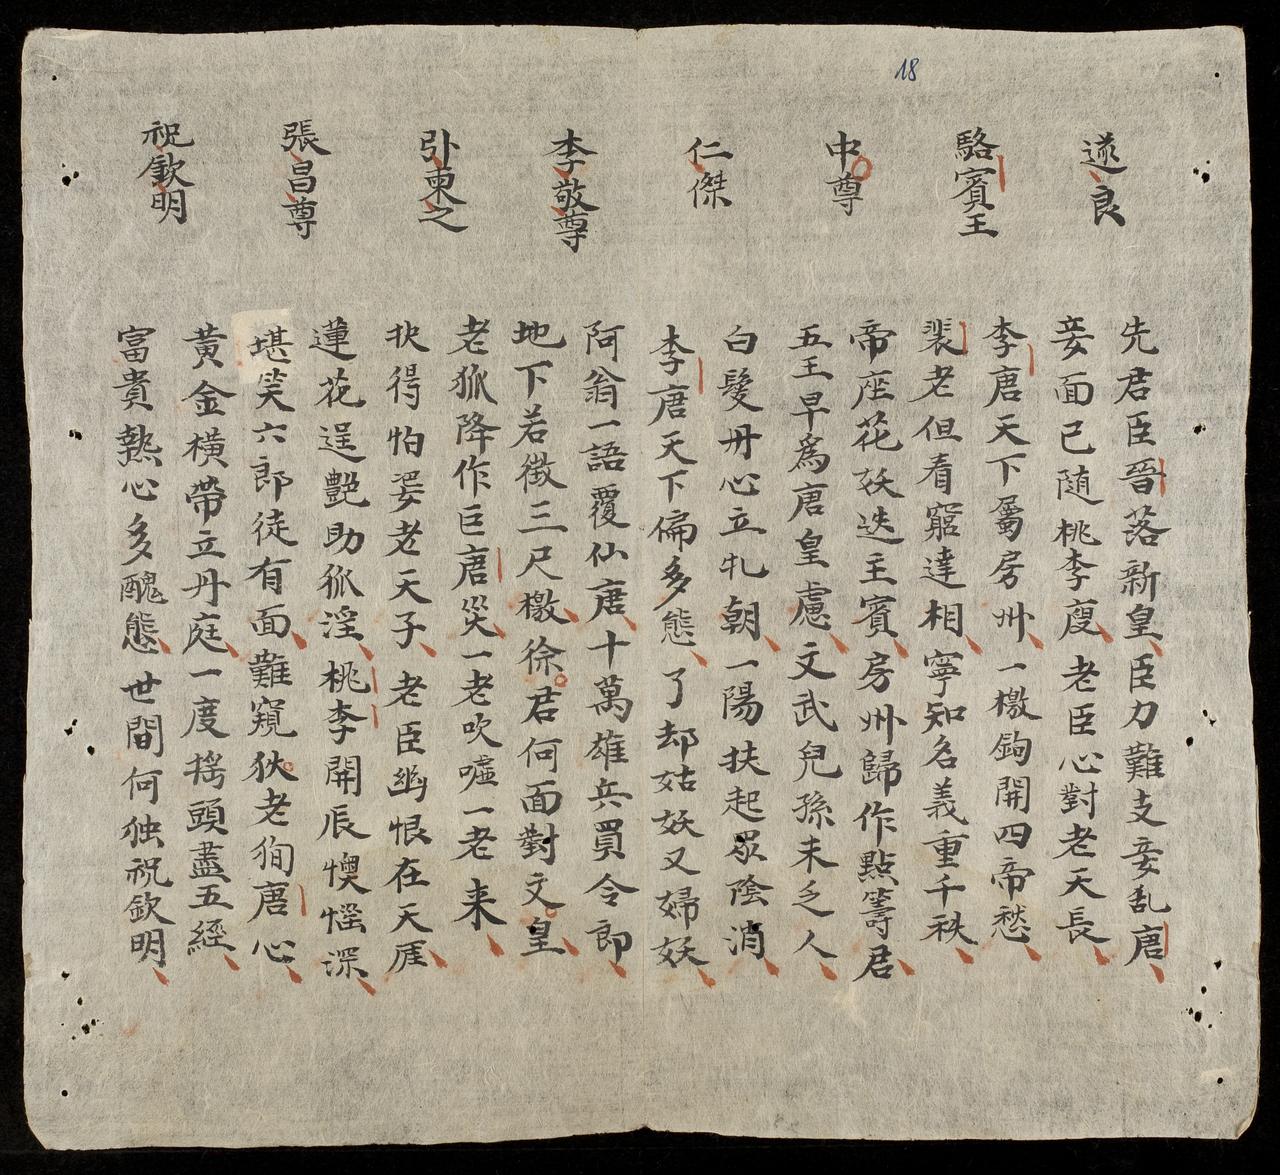 18
遂良
先君臣晉落新皇臣力難支妾乱唐
妾面已随桃李廋老臣心對老天長
駱賓王
李唐天下屬房州一檄鉤開四帝愁
裴老但看窮達相寧知名義重千秩
中尊
帝座花妖迭主賓房州歸作點籌君
五王早爲唐皇慮文武兒孫未乏人
仁傑
白髮丹心立牝朝一陽扶起眾陰消
李唐天下偏多態了却姑妖又婦妖
李敬尊
阿翁一語覆仙唐十萬雄兵買令郎
地下若徵三尺檄徐君何面對文皇
引柬之
老狐降作巨唐災一老吹噓一老来
狄得怕婆老天子老臣幽恨在天厓
張昌尊
蓮花逞艷助狐淫桃李開辰懊惱深
堪笑六郎徒有面難窺狄老徇唐心
祝欽明
黃金橫帶立丹庭一度搖頭盡五經
富貴熱心多醜態世間何独祝欽明